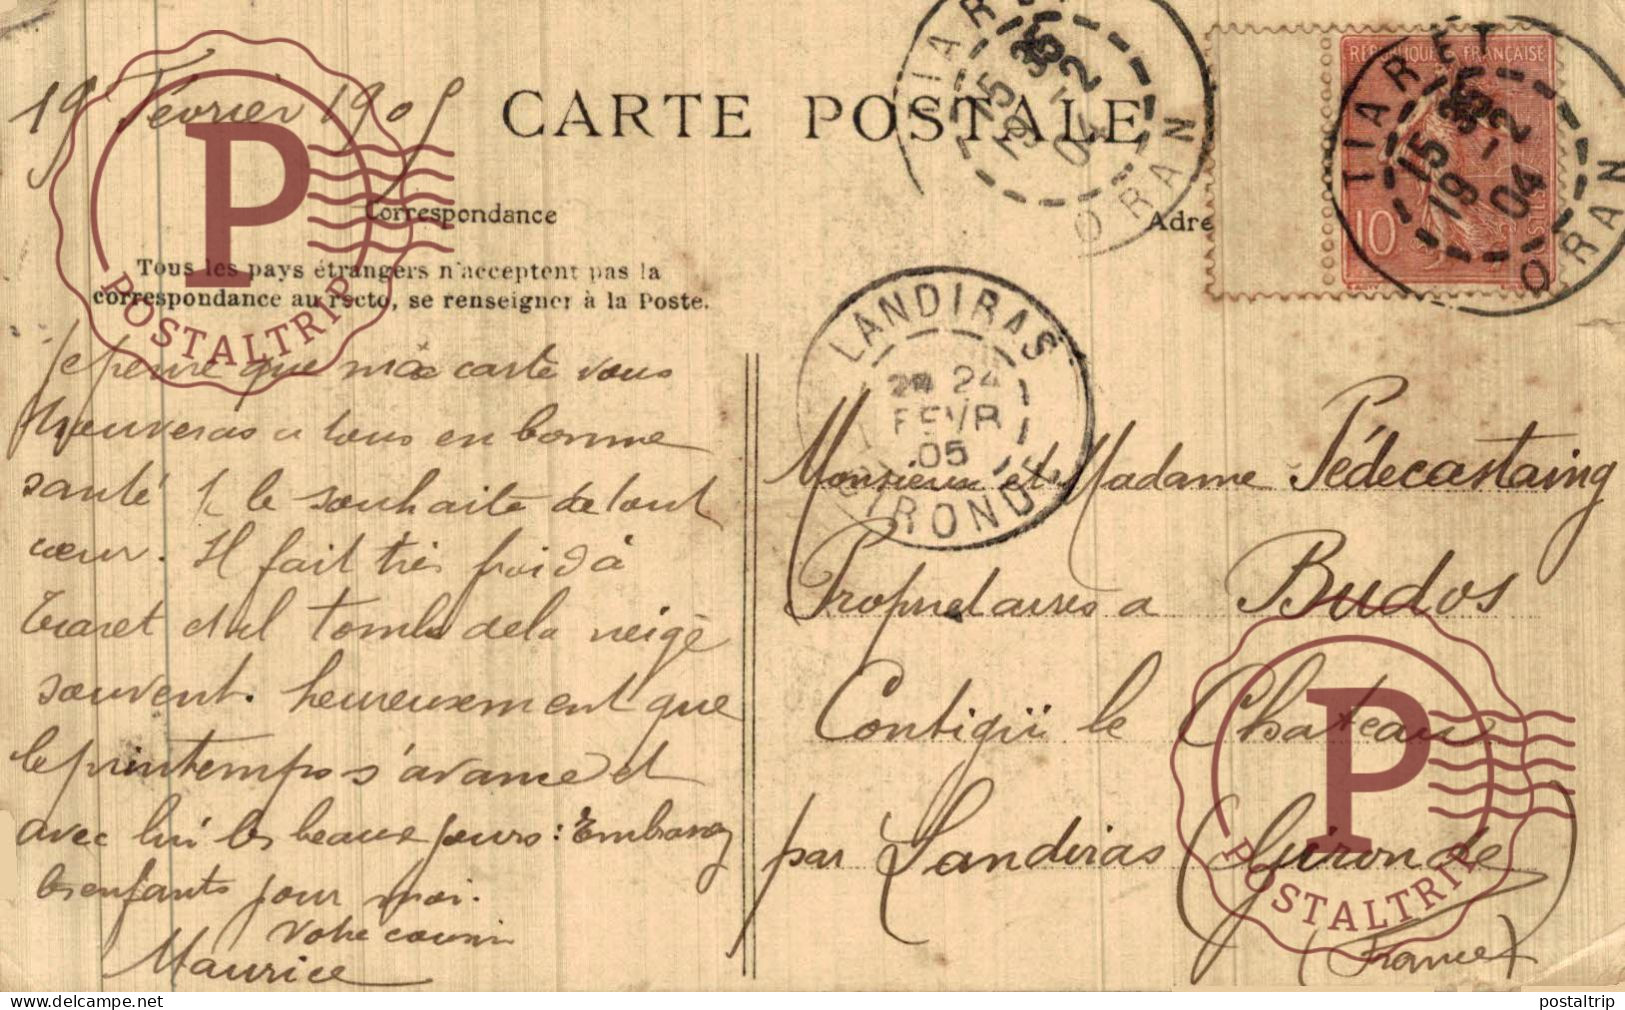 19 Février 1905
CARTE POSTALE
Correspondance
Tous les pays étrangers n'acceptent pas la
correspondance au recto, se renseigner à la Poste.
Adre
RÉPUBLIQUE FRANÇAISE
10
TIARET
15
19-2
04
ORAN
TIARET
15
19-2
04
ORAN
LANDIRAS
24
FEVR
05
GIRONDE
Je pense que ma carte vous
trouveras a tous en bonne
santé Je le souhaite de tout
cœur. Il fait très froid à
Tiaret et il tombe de la neige
souvent. heureusement que
le printemps s'avance et
avec lui les beaux jours : Embrassez
les enfants pour moi.
Votre cousin
Maurice
Monsieur et Madame Pédecastaing
Propriétaires a Budos
Contigüi le Chateau
par Landiras (Gironde
(France)
P
POSTALTRIP
P
POSTALTRIP
https://www.delcampe.net
postaltrip